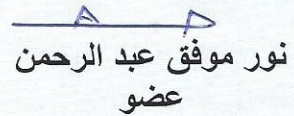 نور موفق عبد الرحمن
عضو